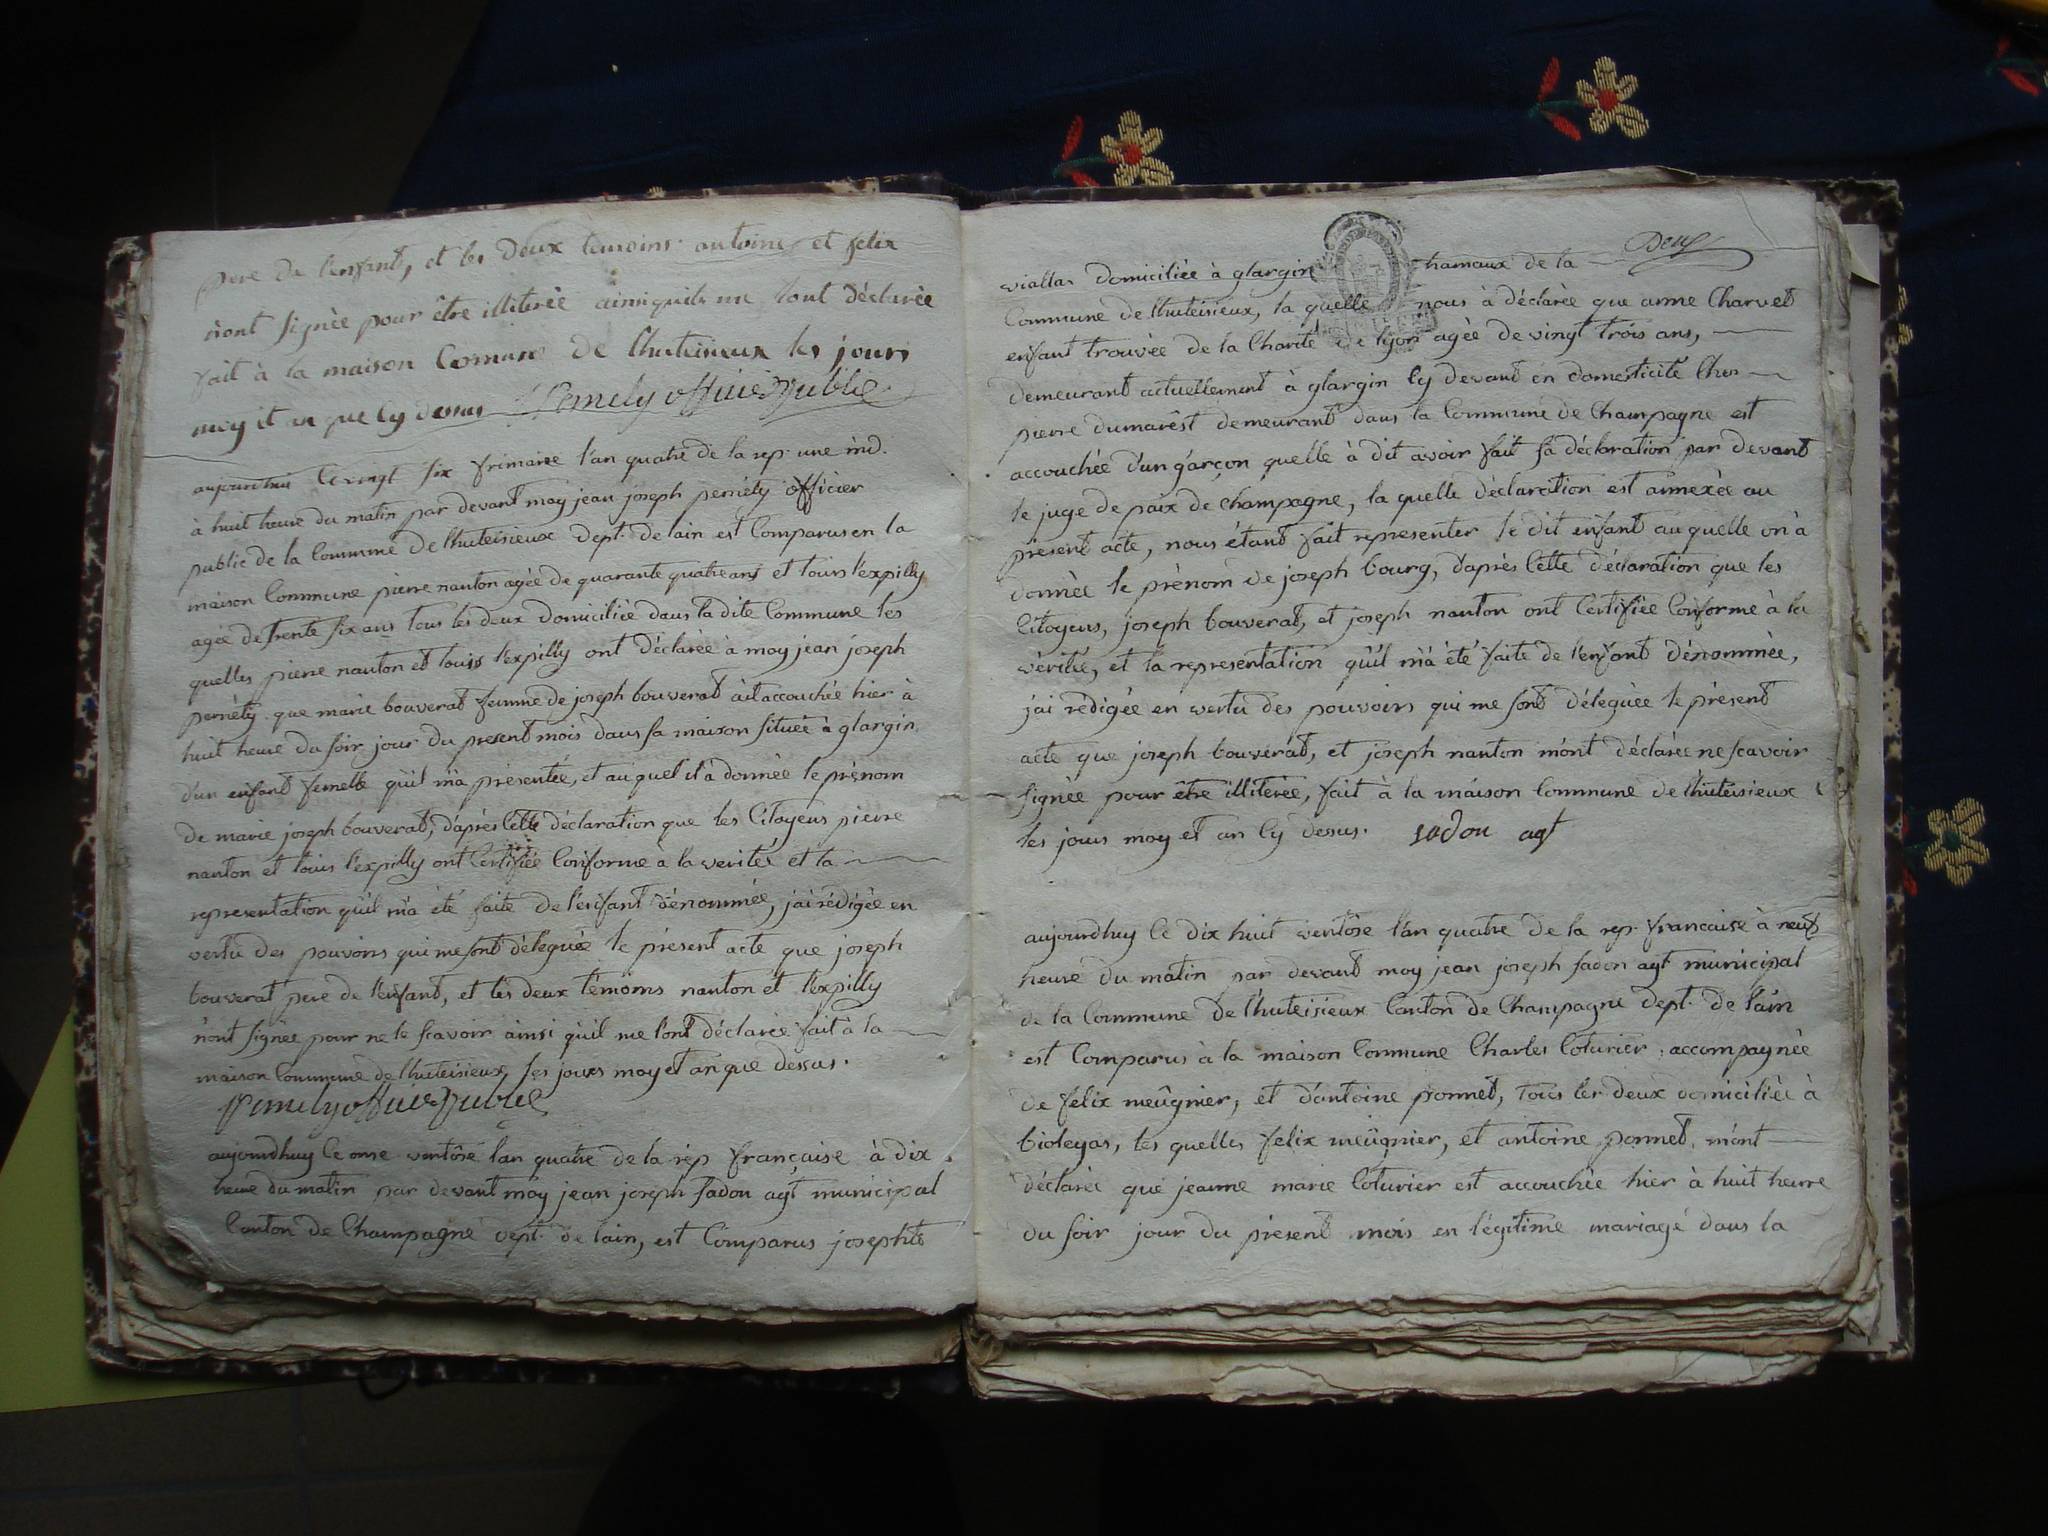 pere de l'enfant, et les deux temoins antoine et felix
n'ont signèe pour être illiterèe ainsi quils me l'ont déclarèe
fait à la maison Comune de lhuteisieux les jours
moy et an que Cy dessus Pernety officier Public
aujourd'hui le vingt six frimaire l'an quatre de la rep. une ind.
à huit heure du matin par devant moy jean joseph pernéty officier
public de la Commune De lhuteisieux Dept. de lain est Comparus en la
maison Commune pierre nanton agèe de quarante quatre ans et louis l'expilly
agèe de trente six ans tous les deux domicilièe dans la dite Commune les
quelles pierre nanton et louis l'expilly ont déclarèe à moy jean joseph
pernèty que màrie bouverat femme de joseph bouverat àit accouchée hier à
huit heure du soir jour du present mois dans sa maison situèe à glargin
d'un enfant femelle quil m'a présentèe, et au quel il à donnèe le prènom
de marie joseph bouverat, d'après cette déclaration que les Citoyens pierre
nanton et louis l'expilly ont Certifièe Conforme à la veritée et la
representation qu'il m'a étè faite de l'enfant dénommée, j'ai rédigèe en
vertu des pouvoirs qui me sont déleguèe le présent acte que joseph
bouverat pere de l'enfant, et les deux témoins nanton et l'expilly
n'ont signèe pour ne le scavoir ainsi qu'il me l'ont déclarèe fait à la
maison Commune de lhuteisieux les jours moy et an que dessus.
Pernety officier Public
aujourdhuy le onse ventôse lan quatre de la rep française à dix
heure du matin par devant moy jean joseph sadon agt municipal
Canton de Champagne dept. de lain, est Comparus josephte
Deux
viallas domicilièe à glargin hamaux de la
Commune de lhuteisieux, la quelle nous à déclarèe que anne Charvet
enfant trouvèe de la Charité de lyon agèe de vingt trois ans,
demeurant actuellement à glargin Cy devant en domesticité Ches
pierre dumarêst demeurant dans la Commune de Champagne est
accouchée d'un garçon quelle à dit avoir fait sa déclaration par devant
le juge de paix de champagne, la quelle déclaration est annexèe au
présent acte, nous étant fait representer le dit enfant au quelle on à
donnèe le prènom de joseph bourg, d'après Cette déclaration que les
Citoyens, joseph bouverat, et joseph nanton ont Certifièe Conforme à la
vèritèe, et la representation quil m'à étè faite de l'enfant dénommèe,
j'ai rédigèe en vertu des pouvoirs qui me sont déleguèe le présent
acte que joseph bouverat, et joseph nanton m'ont déclarèe ne scavoir
signèe pour être illiterèe, fait à la màison Commune de lhuteisieux
les jours moy et an Cy dessus. sadon agt
aujourdhuy le dix huit ventôse l'an quatre de la rep. francaise à neuf
heure du matin par devant moy jean joseph sadon agt municipal
de la Commune De lhuteisieux Canton de Champagne dept. de l'ain
est Comparus à la maison Commune Charles Coturier accompagnèe
de felix meûgnier, et d'antoine ponnet, tous les deux domicilièe à
bioleyas, les quelles felix meûgnier, et antoine ponnet, m'ont
déclarèe que jeanne marie Coturier est accouchée hier à huit heure
du soir jour du présent mois en légitime mariagé dans la